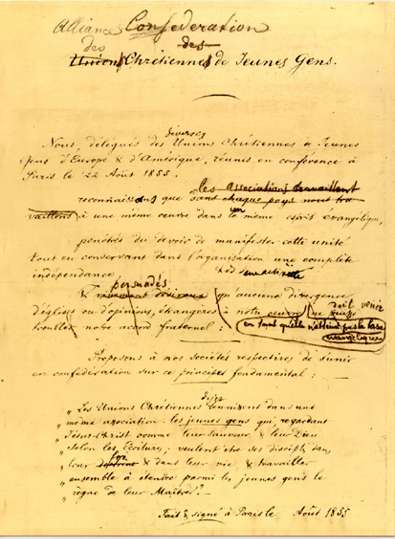 Alliance Confederation
des des
Unions Chrétiennes de Jeunes Gens.
diverses
Nous, délégués des Unions Chrétiennes de Jeunes
Gens d'Europe & d'Amérique, réunis en conférence à
Paris le 22 Août 1855.
les associations travaillant
reconnaissons que dans chaque pays nous tra
vaillons à une même œuvre dans le même esprit évangélique,
pénétrés du devoir de manifester cette unité
tout en conservant dans l'organisation une complète
indépendance
persuadés
& qu'aucune divergence
doit venir
d'églises ou d'opinions, étrangères à notre œuvre ne puisse
troubler notre accord fraternel :
en tant qu'elle n'atteint pas la base
évangélique
Proposons à nos sociétés respectives de s'unir
en confédération sur ce principe fondamental :
"Les Unions Chrétiennes réunissent dans une
"même association les jeunes gens qui, regardant
"Jésus-Christ comme leur Sauveur & leur Dieu
"selon les Écritures, veulent être ses disciples dans
"leur foi & dans leur vie & travailler
"ensemble à étendre parmi les jeunes gens le
"règne de leur Maître". —
Fait & signé à Paris le Août 1855